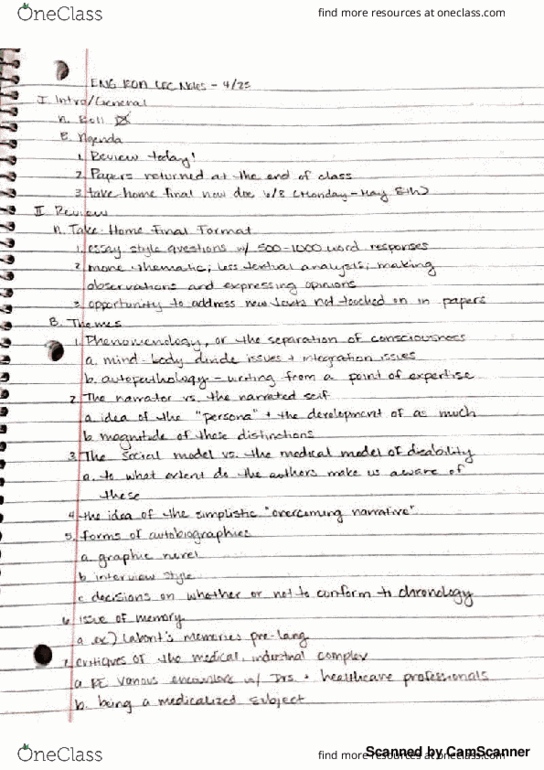 OneClass
find more resources at oneclass.com
LEC Notes - 4/25
I. Intro/General
A. Roll
B. Agenda
1. Review today!
2. Papers returned at the end of class
3. take home final now due (Monday - May 8th)
II. Review
A. Take-Home Final Format
1. essay style questions w/ 500-1000 word responses
2. more thematic; less textual analysis; making
observations and expressing opinions
3. opportunity to address new texts not touched on in papers
B. Themes
1. Phenomenology, or the separation of consciousness
a. mind-body divide issues + integration issues
b. autopathology - writing from a point of expertise
2. The narrator vs. the narrated self
a. idea of the "persona" + the development of as much
b. magnitude of these distinctions
3. The social model vs. the medical model of disability
a. to what extent do the authors make us aware of
these
4. the idea of the simplistic "overcoming narrative"
5. forms of autobiographies
a. graphic novel
b. interview style
c. decisions on whether or not to conform to chronology
6. issue of memory
a. ex) memories pre-lang
7. critiques of the medical, industrial complex
a. various encounters w/ Drs. + healthcare professionals
b. being a medicalized subject
OneClass
find more resources at oneclass.com
Scanned by CamScanner